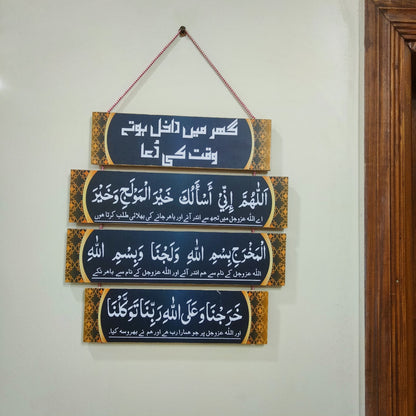 گھر میں داخل ہوتے
وقت کی دُعا
اَللّٰهُمَّ اِنِّيْ أَسْأَلُكَ خَيْرَ الْمَوْلَجِ وَخَيْرَ
اے اللّٰہ عزوجل میں تجھ سے اندر آنے اور باہر جانے کی بھلائی طلب کرتا ہوں
الْمَخْرَجِ بِسْمِ اللهِ وَلَجْنَا وَبِسْمِ اللهِ
اللّٰہ عزوجل کے نام سے ہم اندر آئے اور اللّٰہ عزوجل کے نام سے باہر نکلے
خَرَجْنَا وَعَلَى اللهِ رَبِّنَا تَوَكَّلْنَا
اور اللّٰہ عزوجل پر جو ہمارا رب ہے اور ہم نے بھروسہ کیا۔